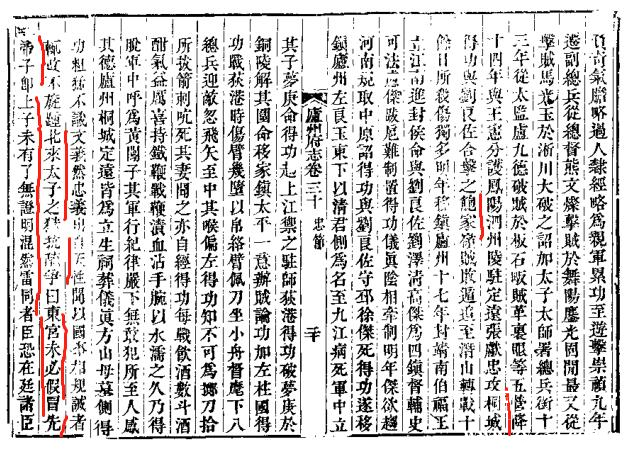 負奇氣膽略過人隸經略為親軍累功至遊擊崇禎九年
遷副總兵從總督熊文燦擊賊於舞陽鏖光固間最又從
擊賊馬光玉於淅川大破之詔加太子太師署總兵銜十
三年從太監盧九德破賊於板石畈賊革裏眼等五營降
十四年與王憲分護鳳陽泗州陵駐定遠張獻忠攻桐城
得功與劉良佐合擊之鮑家嶺賊敗遁追至潛山轉戰十
餘日所殺傷獨多明年移鎮廬州十七年封靖南伯福王
立江南進封侯命與劉良佐劉澤清高傑為四鎮督輔史
可法慮傑跋扈難制置得功儀眞陰相牽制明年傑欲趨
河南規取中原詔得功與劉良佐守邳徐傑死得功遂移
鎮廬州左良玉東下以清君側為名至九江病死軍中立
廬州府志卷三十 忠節 二十
其子夢庚命得功趨上江禦之駐師荻港得功破夢庚於
銅陵解其圍命移家鎮太平一意辦賊論功加左柱國得
功戰荻港時傷臂幾墮以帛絡臂佩刀坐小舟督麾下八
總兵迎敵忽飛矢至中其喉偏左得功知不可為擲刀拾
所拔箭刺吭死其妻聞之亦自經得功每戰飲酒數斗酒
酣氣益厲喜持鐵鞭戰鞭漬血沾手腕以水濡之久乃得
脫軍中呼為黃闖子其軍行紀律嚴下無敢犯所至人感
其德廬州桐城定遠皆為立生祠葬儀眞方山母墓側得
功粗猛不識文義然忠義明自天性聞以國事相規誡者
輒改不旋踵北來太子之獄抗疏爭曰東宮未必假冒先
帝子即上子未有了無證明混然雷同者臣恐在廷諸臣